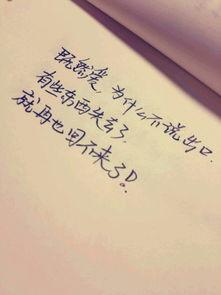 既然爱,为什么不说出口.
有些东西失去了.
就再也回不来了。